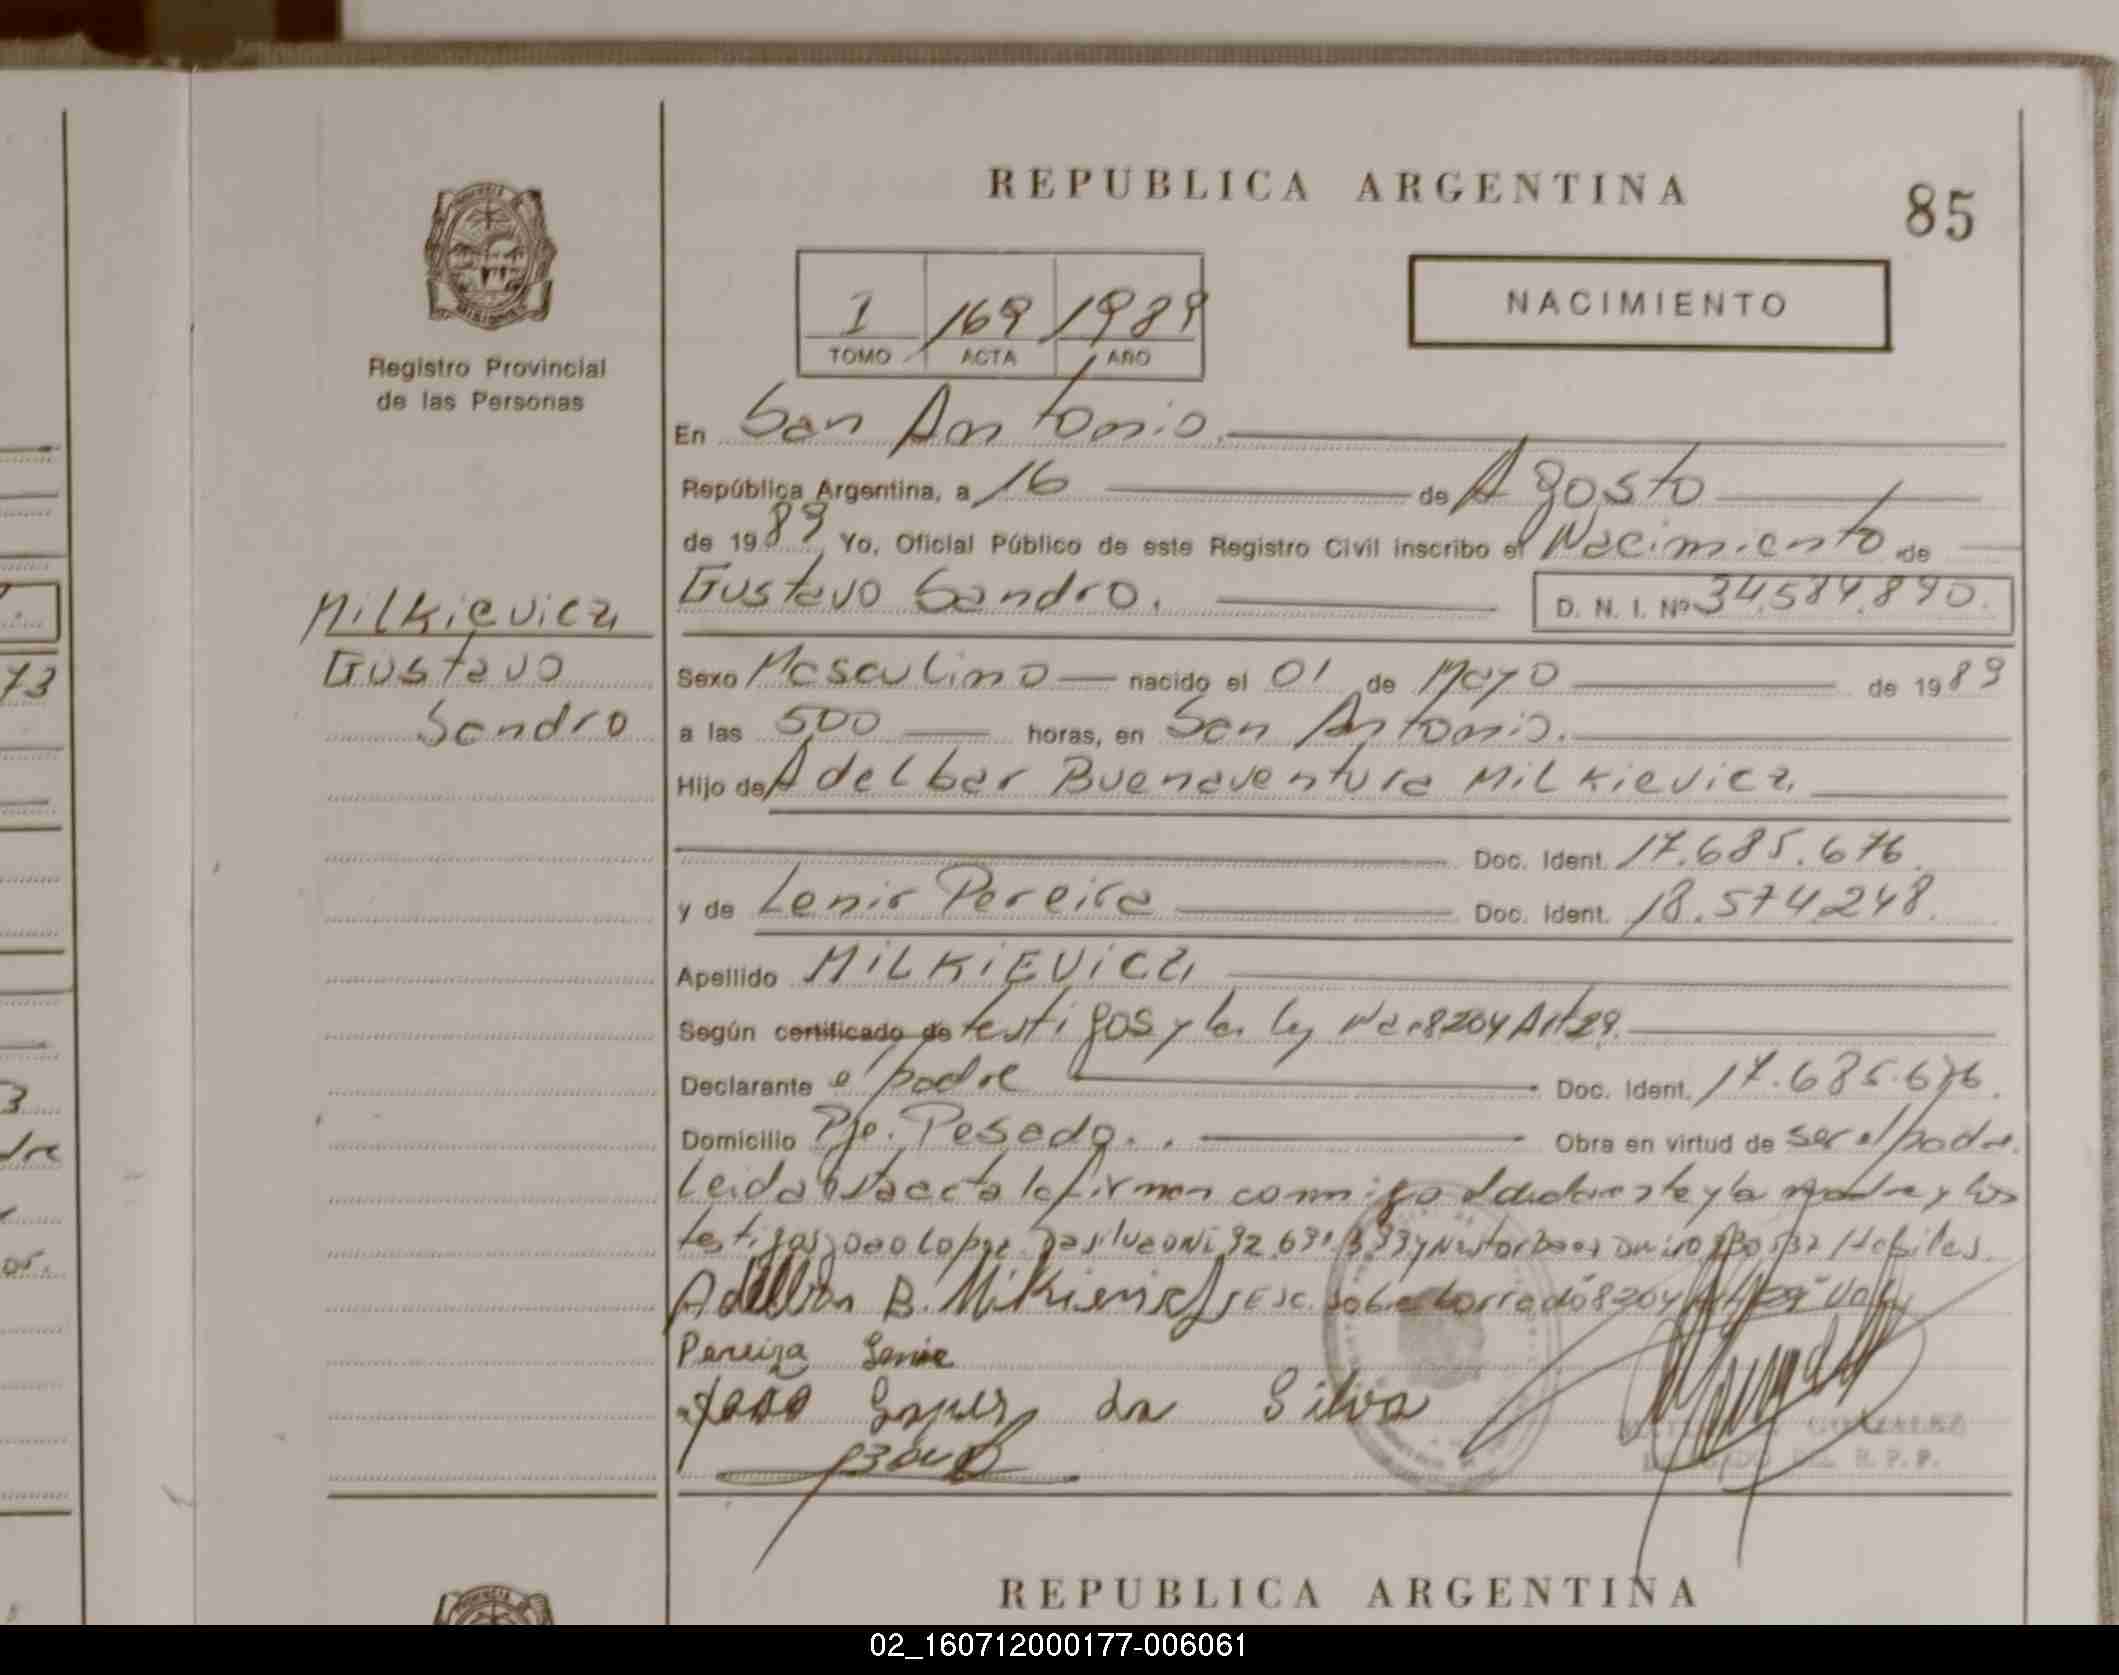 REPUBLICA ARGENTINA
85
NACIMIENTO
1 169 1989
TOMO ACTA AÑO
Registro Provincial
de las Personas
En San Antonio.
República Argentina, a 16 de Agosto
de 1989 Yo, Oficial Público de este Registro Civil inscribo el Nacimiento de
Gustavo Sandro. D. N. I. Nº 34.589.890.
Milkievicz
Gustavo
Sandro
Sexo Masculino nacido el 01 de Mayo de 1989
a las 500 horas, en San Antonio.
Hijo de Adelbar Buenaventura Milkievicz
Doc. Ident. 17.685.676.
y de Lenir Pereira Doc. Ident. 18.574248.
Apellido MiLKiEViCz
Según certificado de testigos y la ley 8204 Art 29.
Declarante el padre Doc. Ident. 17.685.676.
Domicilio Pje. Pesado. Obra en virtud de ser el padre.
Leida esta acta la firman conmigo el declarante y la madre y los
testigos Joao Lopez Da silva DNi 92.691.
B. Milkievicz Esc. sobre borrado 8204 Art 29
Pereira Lenir
Joao Lopes da Silva
R. P. P.
REPUBLICA ARGENTINA
02_160712000177-006061